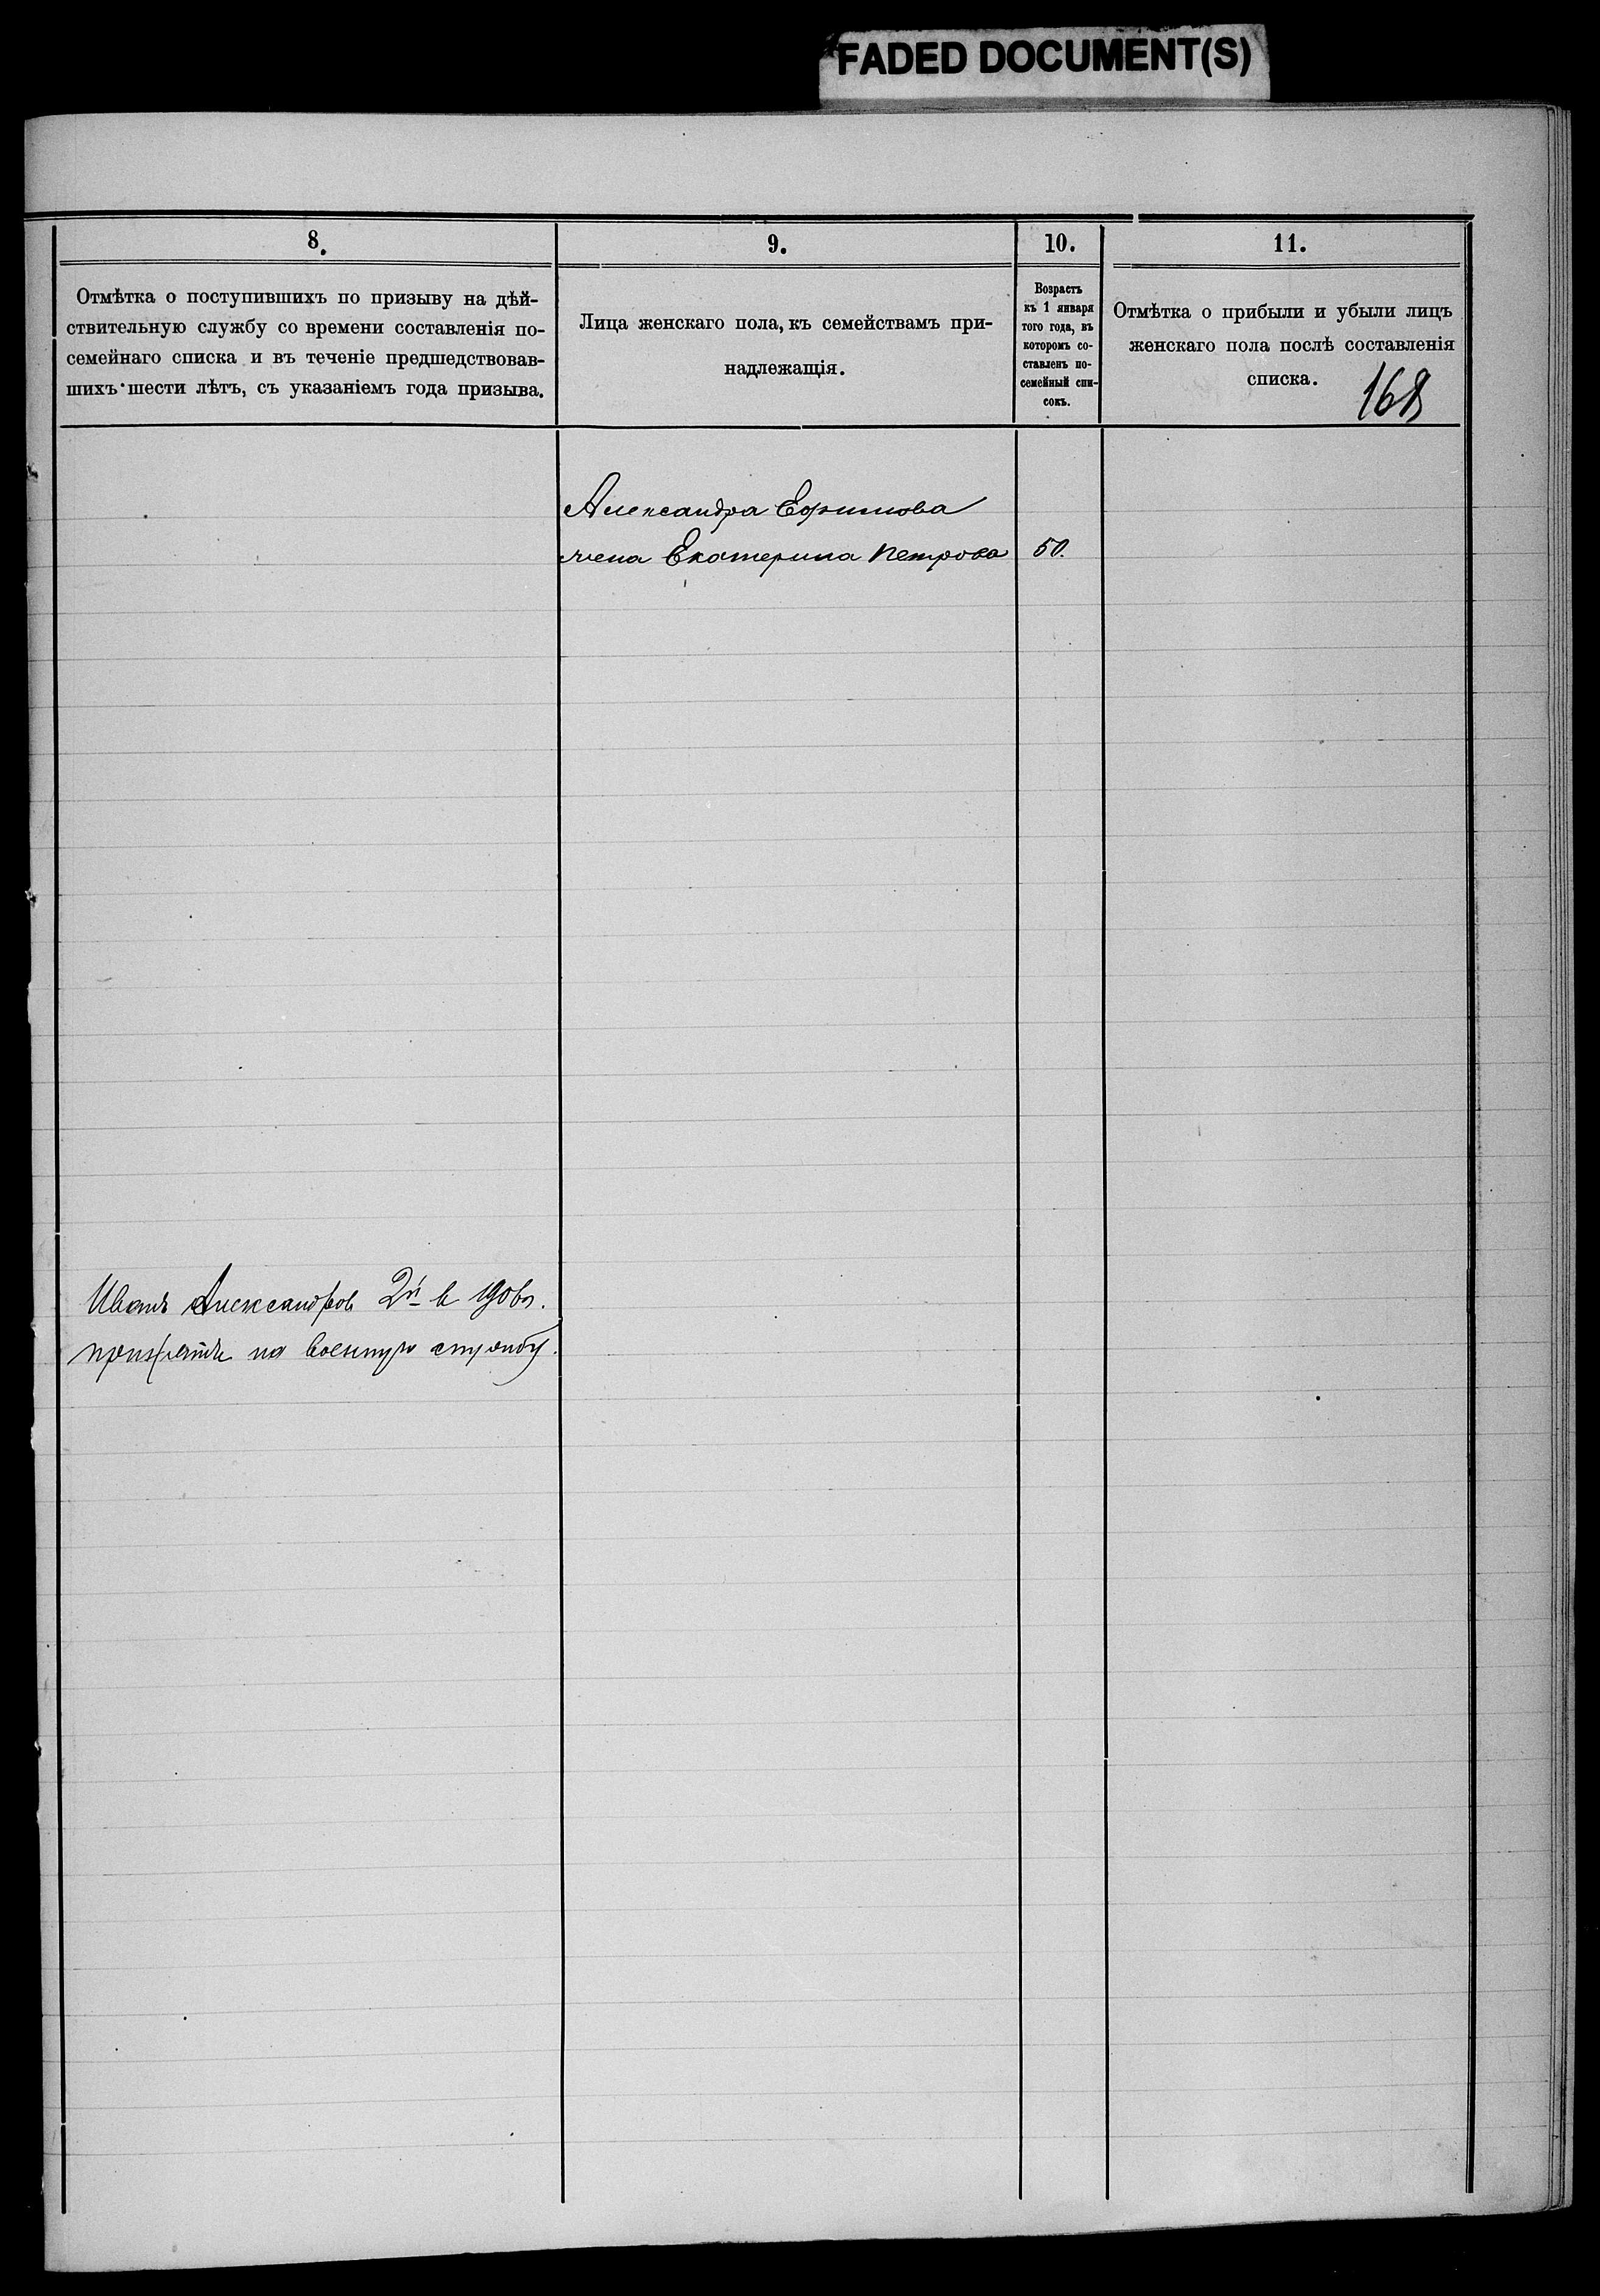 FADED DOCUMENT(S)
8.
Отмѣтка о поступившихъ по призыву на дѣй-
ствительную службу со времени составленія по-
семейнаго списка и въ теченіе предшедствовав-
шихъ шести лѣтъ, съ указаніемъ года призыва.
9.
Лица женскаго пола, къ семействамъ при-
надлежащія.
10.
Возрастъ
къ 1 января
того года, въ
которомъ со-
ставленъ по-
семейный спи-
сокъ.
11.
Отмѣтка о прибыли и убыли лицъ
женскаго пола послѣ составленія
списка.
168
Александра Ефимова
жена Екатерина Петрова 50.
Иванъ Александров 2й в 1906г.
на военную службу.